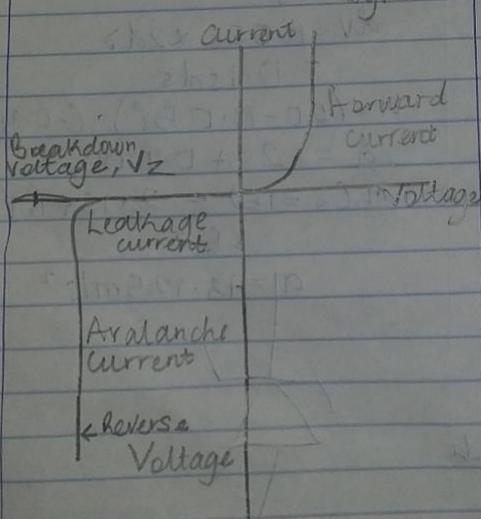 Current
Forward
current
Breakdown
Voltage, Vz
Voltage
Leathage
current
Avalanche
Current
←Reverse
Voltage